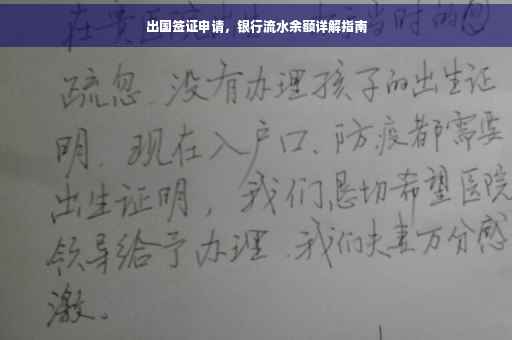 出国签证申请，银行流水余额详解指南
当时的
疏忽.没有办理孩子的出生证
明.现在入户口、防疫都需要
出生证明，我们恳切希望医院
领导给予办理.我们夫妻万分感
激。